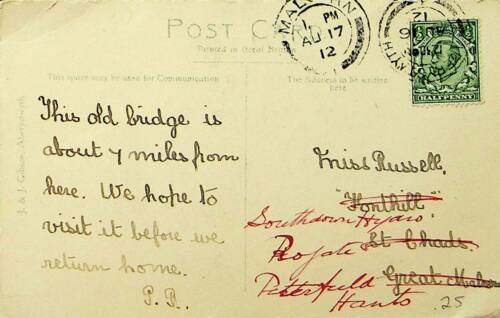 POST CARD
Printed in Great Britain
This space may be used for Communication
The Address to be written
here
MALVERN
1 PM
AU 17
12
12
HALFPENNY
J. & J. Gibson, Aberystwyth
This old bridge is
about 7 miles from
here. We hope to
visit it before we
return home.
P.R.
Miss Russell,
"Fonthill"
St Chads.
Great Malvern
Southdown Hydro
Rogate
Petersfield
Hants
25